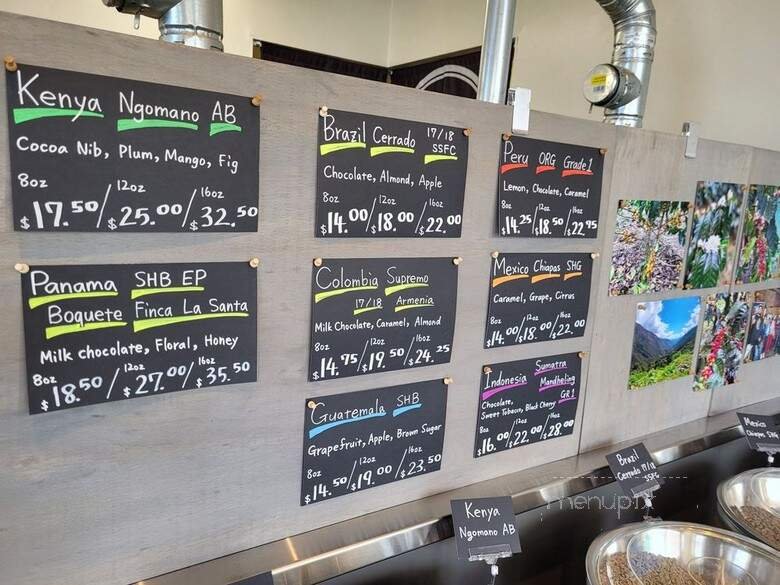 Kenya Ngomano AB
Cocoa Nib, Plum, Mango, Fig
8oz 12oz 16oz
$17.50/$25.00/$32.50
Panama SHB EP
Boquete Finca La Santa
Milk chocolate, Floral, Honey
8oz 12oz 16oz
$18.50/$27.00/$35.50
Brazil Cerrado 17/18
SSFC
Chocolate, Almond, Apple
8oz 12oz 16oz
$14.00/$18.00/$22.00
Colombia Supremo
17/18 Armenia
Milk Chocolate, Caramel, Almond
8oz 12oz 16oz
$14.75/$19.50/$24.25
Guatemala SHB
Grapefruit, Apple, Brown Sugar
8oz 12oz 16oz
$14.50/$19.00/$23.50
Peru ORG Grade 1
Lemon, Chocolate, Caramel
8oz 12oz 16oz
$14.25/$18.50/$22.75
Mexico Chiapas SHG
Caramel, Grape, Citrus
8oz 12oz 16oz
$14.00/$18.00/$22.00
Indonesia Sumatra
Mandheling
GR1
Chocolate,
Sweet Tobacco, Black Cherry
8oz 12oz 16oz
$16.00/$22.00/$28.00
Kenya
Ngomano AB
Brazil
Cerrado 17/18
SSFC
Mexico
Chiapas SHG
menupix